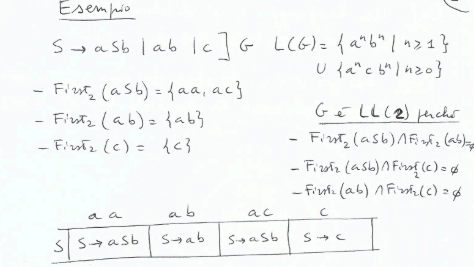 Esempio
S → aSb | ab | c ] G L(G) = { aⁿbⁿ | n ≥ 1 }
∪ { aⁿ c bⁿ | n ≥ 0 }
- First₂ (aSb) = {aa, ac}
- First₂ (ab) = {ab}
- First₂ (c) = {c}
G è LL(2) perché
- First₂(aSb) ∩ First₂(ab) = ∅
- First₂(aSb) ∩ First₂(c) = ∅
- First₂(ab) ∩ First₂(c) = ∅
aa ab ac c
S S → aSb S → ab S → aSb S → c